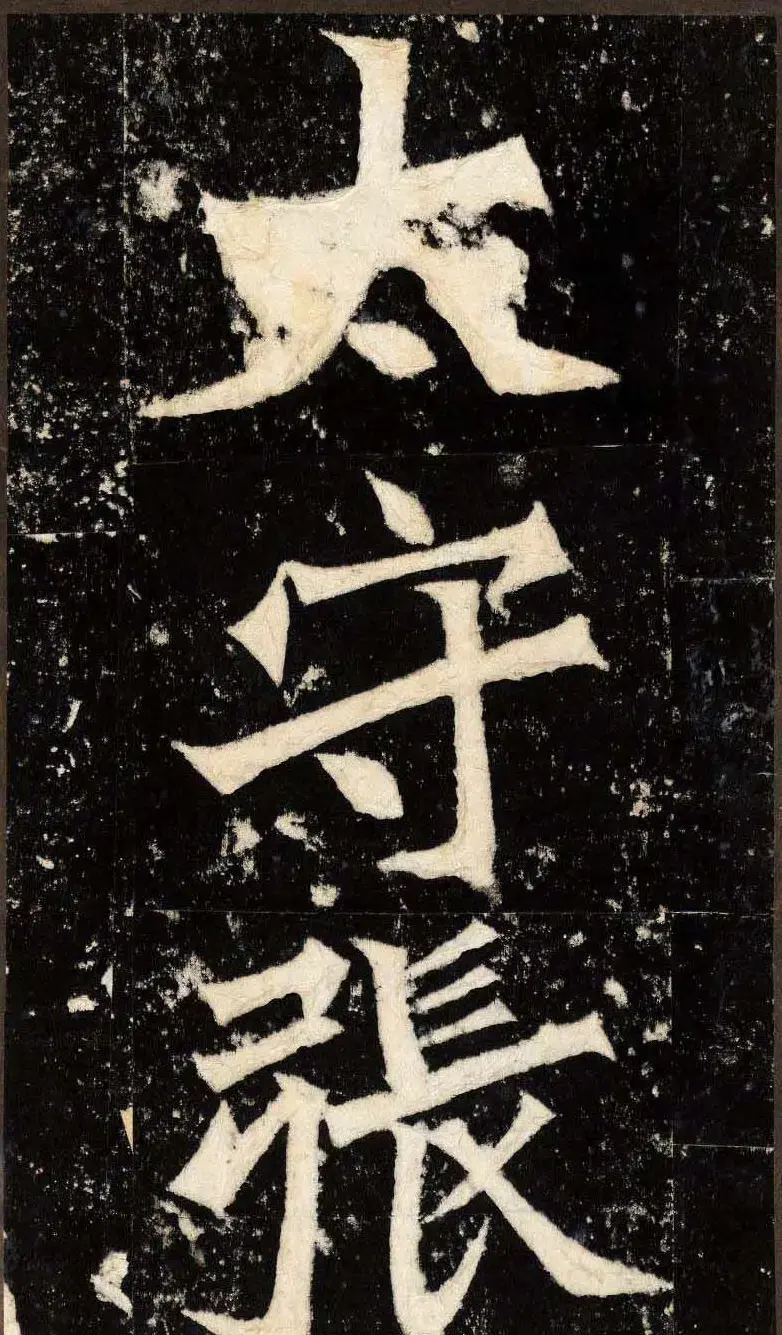 太守張